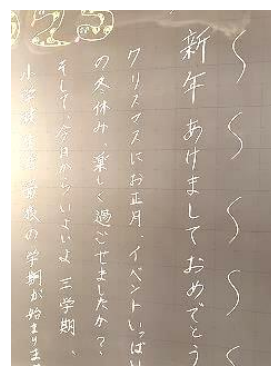 025
新年あけましておめでとう
クリスマスにお正月、イベントいっぱい
の冬休み、楽しく過ごせましたか?
そして、今日からいよいよ三学期、
小学校生活最後の学期が始まりま